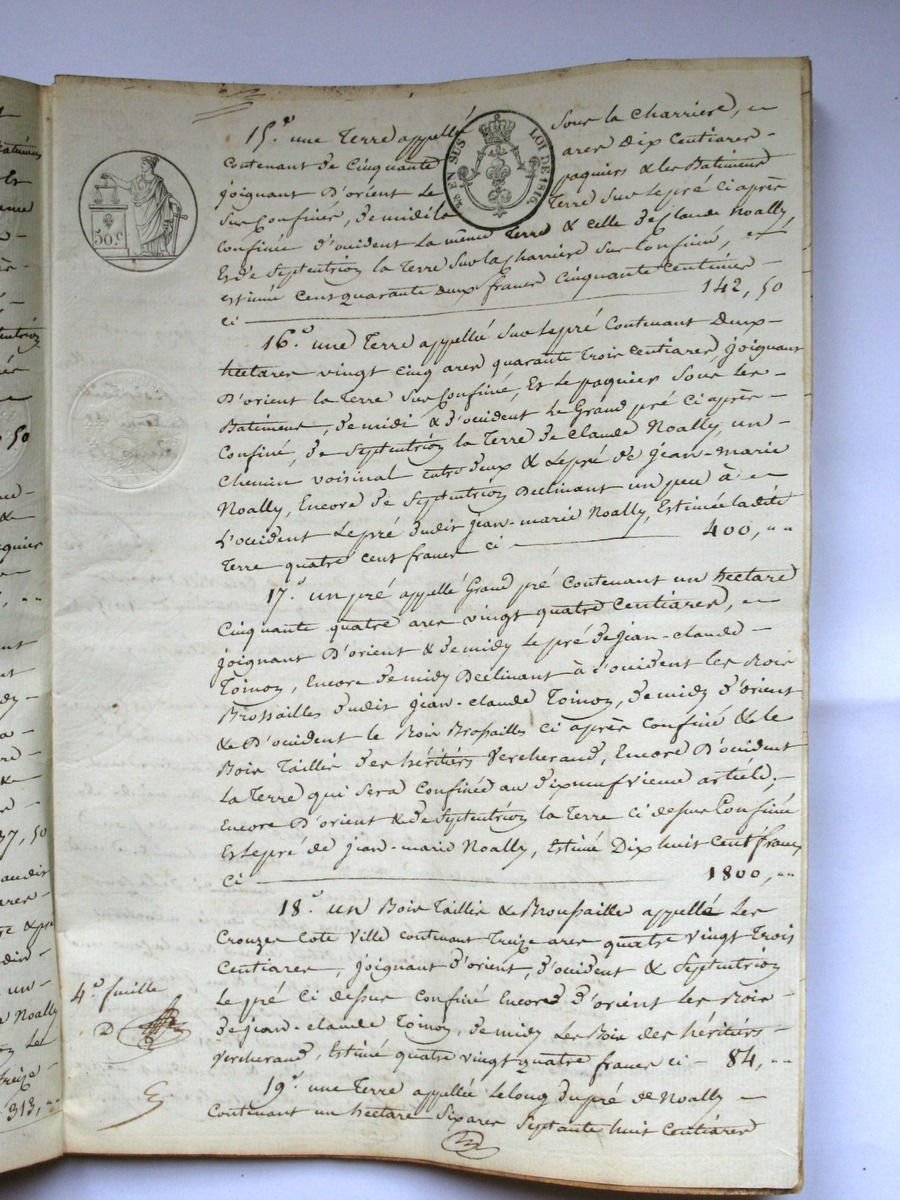 15.° une Terre appellé Sous la Charriere,
Contenant de Cinquante ares Dix Centiares
joignant D'orient Le paquier & les Batiments
Sus Confinés, de midi la Terre Sur le pré Ci après
Confiné D'ocident La même Terre & Celle de Claude Noally,
Et de Septentrion la Terre Sur la Charrière Sus Confiné,
estimée Cent quarante deux francs Cinquante Centimes
Ci 142,50
16.° une Terre appellée Sur le pré Contenant Deux
hectares vingt Cinq ares quarante Trois Centiares, joignant
D'orient la Terre Sus Confiné, Et le paquier Sous les
Batiments, de midi & d'ocident Le Grand pré Ci après
Confiné, de Septentrion la Terre de Claude Noally, un
Chemin voisinal entre deux & Le pré de jean-marie
Noally, Encore de Septentrion Declinant un peu à
L'occident Le pré dudit jean-marie Noally, Estimée ladite
Terre quatre cent francs ci 400, ""
17.° un pré appellé Grand pré Contenant un hectare
Cinquante quatre ares vingt quatre Centiares,
joignant D'orient & de midy Le pré de jean-claude
Toinon, Encore de midy Declinant à L'ocident les Bois
Brossailles dudit jean-claude Toinon, de midy d'orient
& D'ocident le Bois Brossailles Ci après Confiné & le
Bois Taillis des héritiers Vercherand, Encore D'ocident
La Terre qui Sera Confinée au dixneufvieme article;
Encore D'orient & de Septentrion la Terre Ci dessus Confiné
Et le pré de jean-marie Noally, Estimé Dix huit Cent francs
Ci 1800, ""
18.° un Bois Taillis & Broussaille appellé Les
Crouzes Coté Ville Contenant Treize ares quatre vingt Trois
Centiares, joignant d'orient, d'ocident & Septentrion
Le pré Ci dessus Confiné Encore d'orient les Bois
de jean-claude Toinon, de midy Les Bois des héritiers
Vercherand, Estimé quatre vingt quatre francs ci 84, ""
19.° une Terre appellée Le long du pré de Noally
Contenant un hectare Six ares Septante huit Centiares
4.e feuille
50.C
EN SUS
LOI DE 1816.
50
37,50
Noally
313, ""